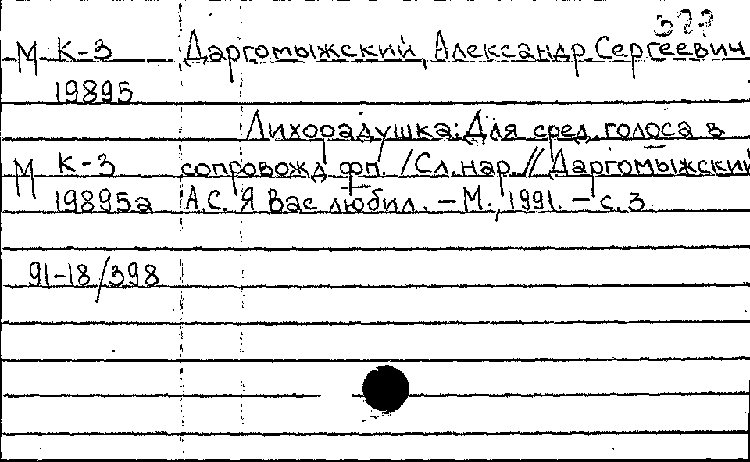 377
М К-3 Даргомыжский, Александр Сергеевич
19895
Лихорадушка: Для сред. голоса в
М К-3 сопровожд. фп. /Сл. нар. // Даргомыжский
19895а А.С. Я Вас любил. – М., 1991. – с. 3
91-18/398